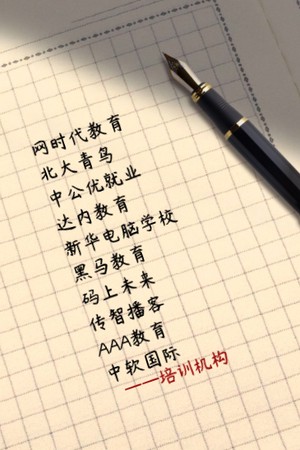 网时代教育
北大青鸟
中公优就业
达内教育
新华电脑学校
黑马教育
码上未来
传智播客
AAA教育
中软国际
——培训机构